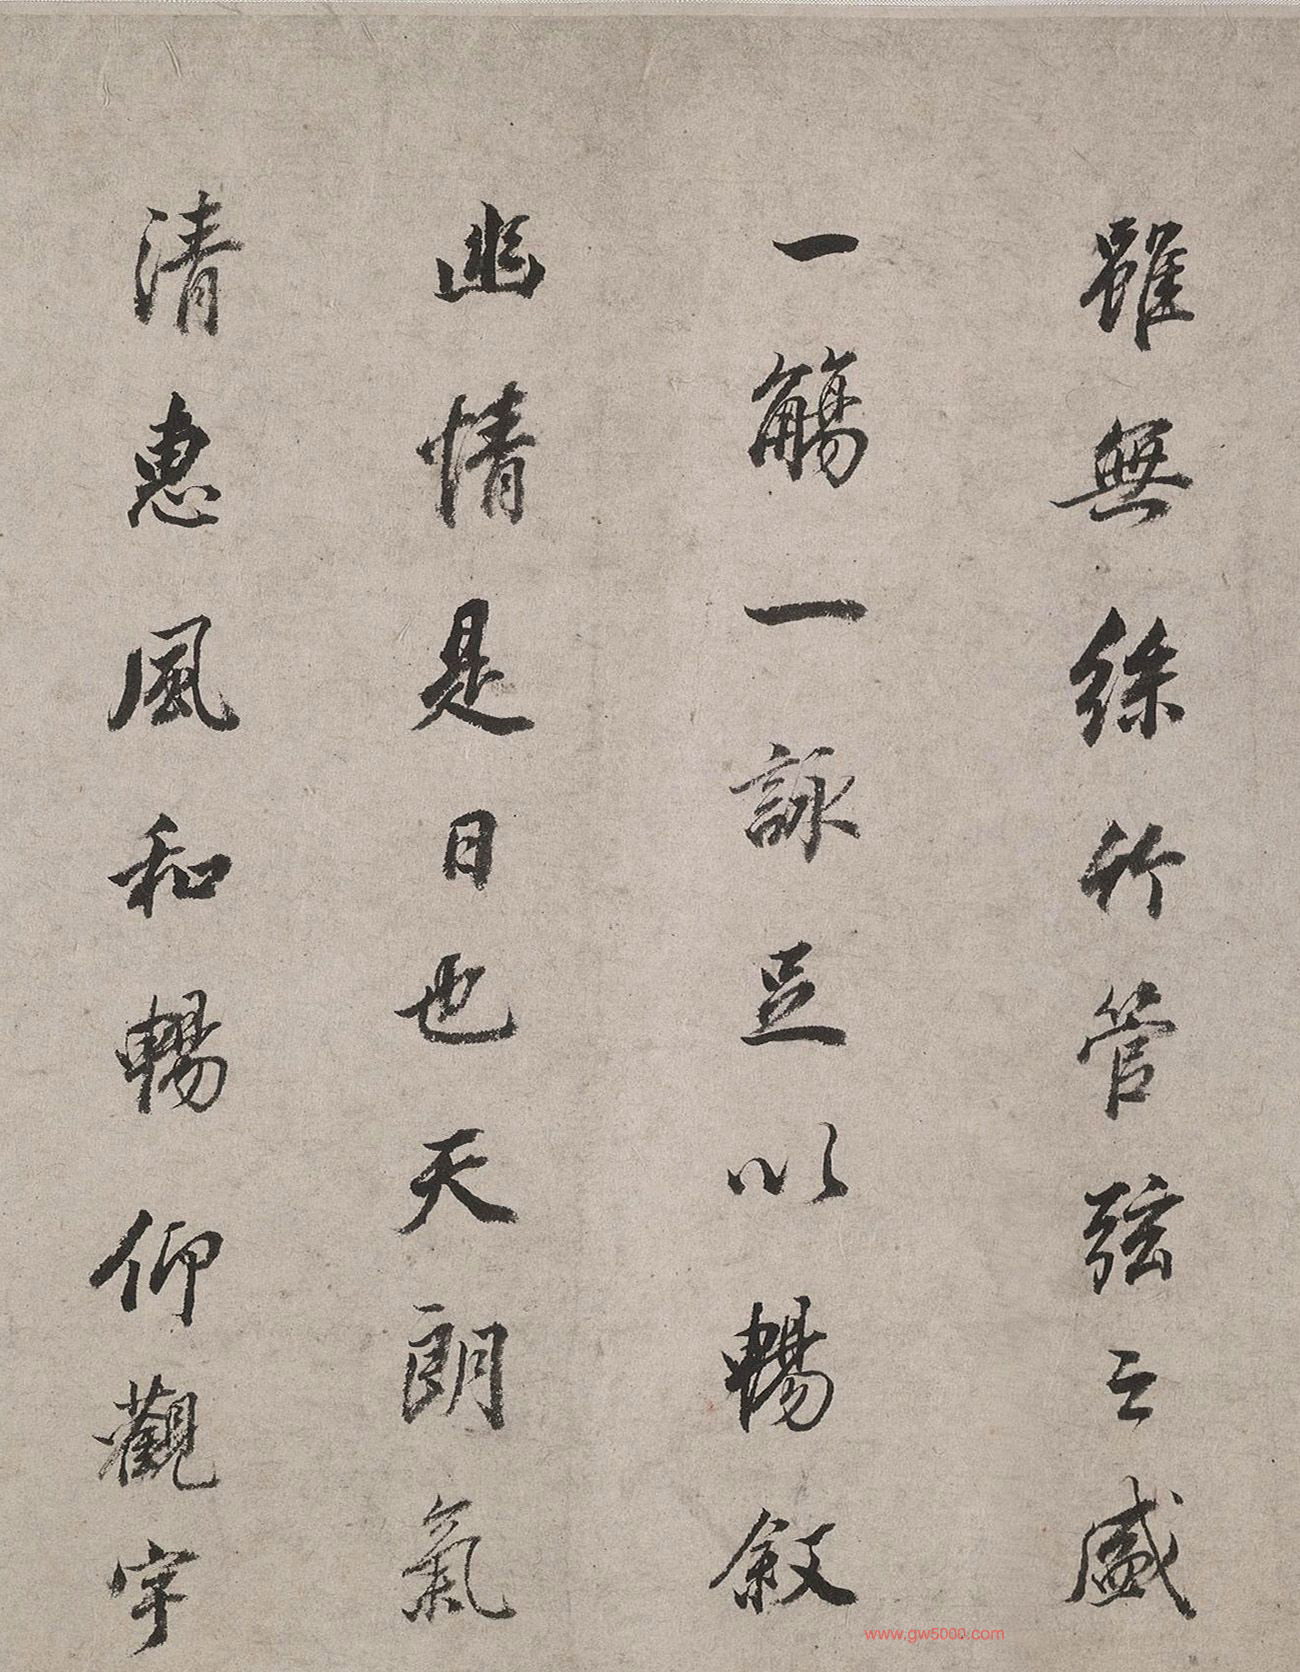 雖無絲竹管弦之盛
一觴一詠足以暢敘
幽情是日也天朗氣
清惠風和暢仰觀宇
www.gw5000.com